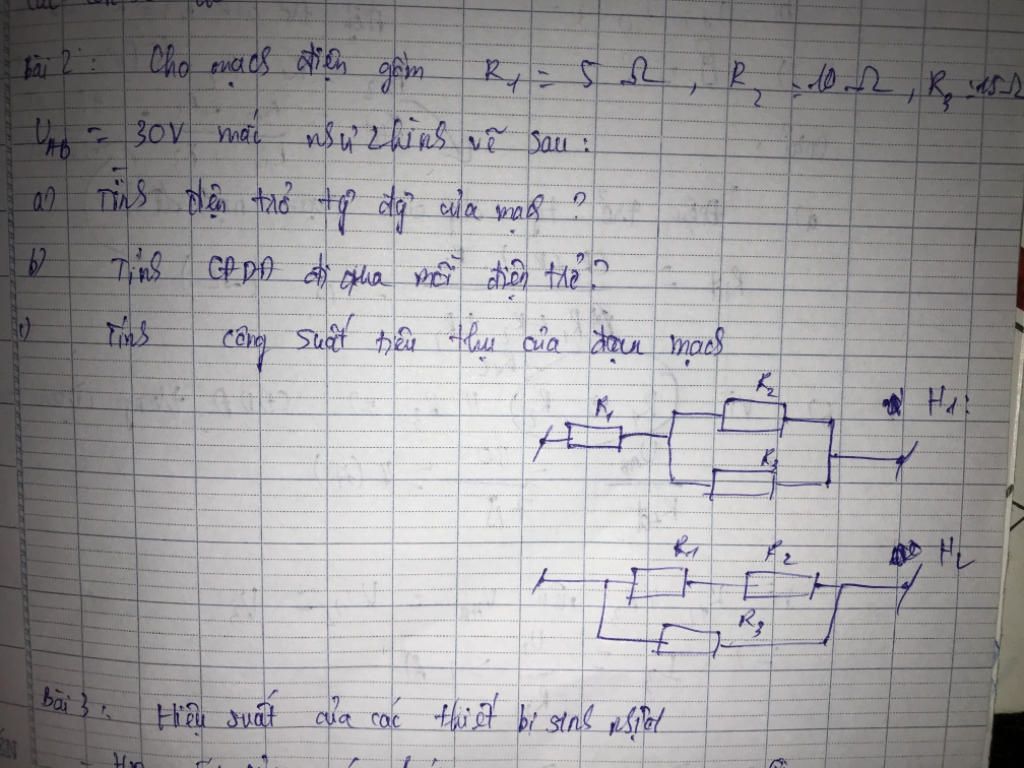 Bài 2: Cho mạch điện gồm R1 = 5 Ω, R2 = 10 Ω, R3 = 15Ω
UAB = 30V mắc như hình vẽ sau:
a) Tính điện trở tg đg của mạch?
b) Tính CĐDĐ đi qua mỗi điện trở?
c) Tính công suất tiêu thụ của đoạn mạch
R2
R1
H1:
R3
R1
R2
H2
R3
Bài 3: Hiệu suất của các thiết bị sinh nhiệt